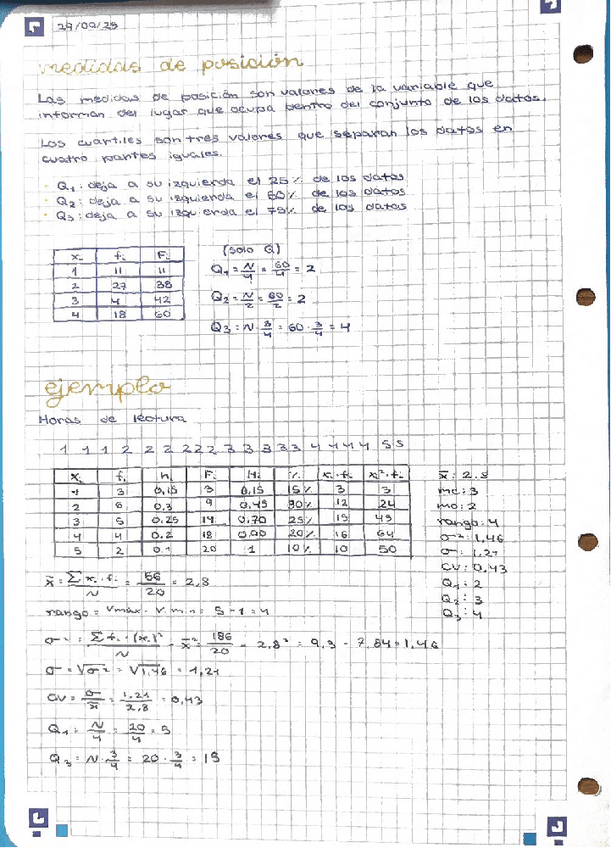 29/09/25
medidas de posición
Las medidas de posición son valores de la variable que
informan del lugar que ocupa dentro del conjunto de los datos.
Los cuartiles son tres valores que separan los datos en
cuatro partes iguales.
Q₁: deja a su izquierda el 25% de los datos
Q₂: deja a su izquierda el 50% de los datos
Q₃: deja a su izquierda el 75% de los datos
xᵢ fᵢ Fᵢ
1 11 11
2 27 38
3 4 42
4 18 60
(solo Q)
Q₁ = N/4 = 60/4 = 2
Q₂ = N/2 = 60/2 = 2
Q₃ = N · 3/4 = 60 · 3/4 = 4
ejemplo
Horas de lectura
1 1 1 2 2 2 2 2 2 3 3 3 3 3 4 4 4 4 5 5
xᵢ fᵢ hᵢ Fᵢ Hᵢ % xᵢ·fᵢ xᵢ²·fᵢ
1 3 0,15 3 0,15 15% 3 3
2 6 0,3 9 0,45 30% 12 24
3 5 0,25 14 0,70 25% 15 45
4 4 0,2 18 0,90 20% 16 64
5 2 0,1 20 1 10% 10 50
x̄: 2,8
me: 3
mo: 2
rango: 4
σ²: 1,46
σ: 1,21
CV: 0,43
Q₁: 2
Q₂: 3
Q₃: 4
x̄ = Σxᵢ·fᵢ/N = 56/20 = 2,8
rango = Vmáx - Vmin = 5 - 1 = 4
σ² = Σfᵢ·(xᵢ)²/N - x̄² = 186/20 - 2,8² = 9,3 - 7,84 = 1,46
σ = √σ² = √1,46 = 1,21
CV = σ/x̄ = 1,21/2,8 = 0,43
Q₁ = N/4 = 20/4 = 5
Q₃ = N · 3/4 = 20 · 3/4 = 15